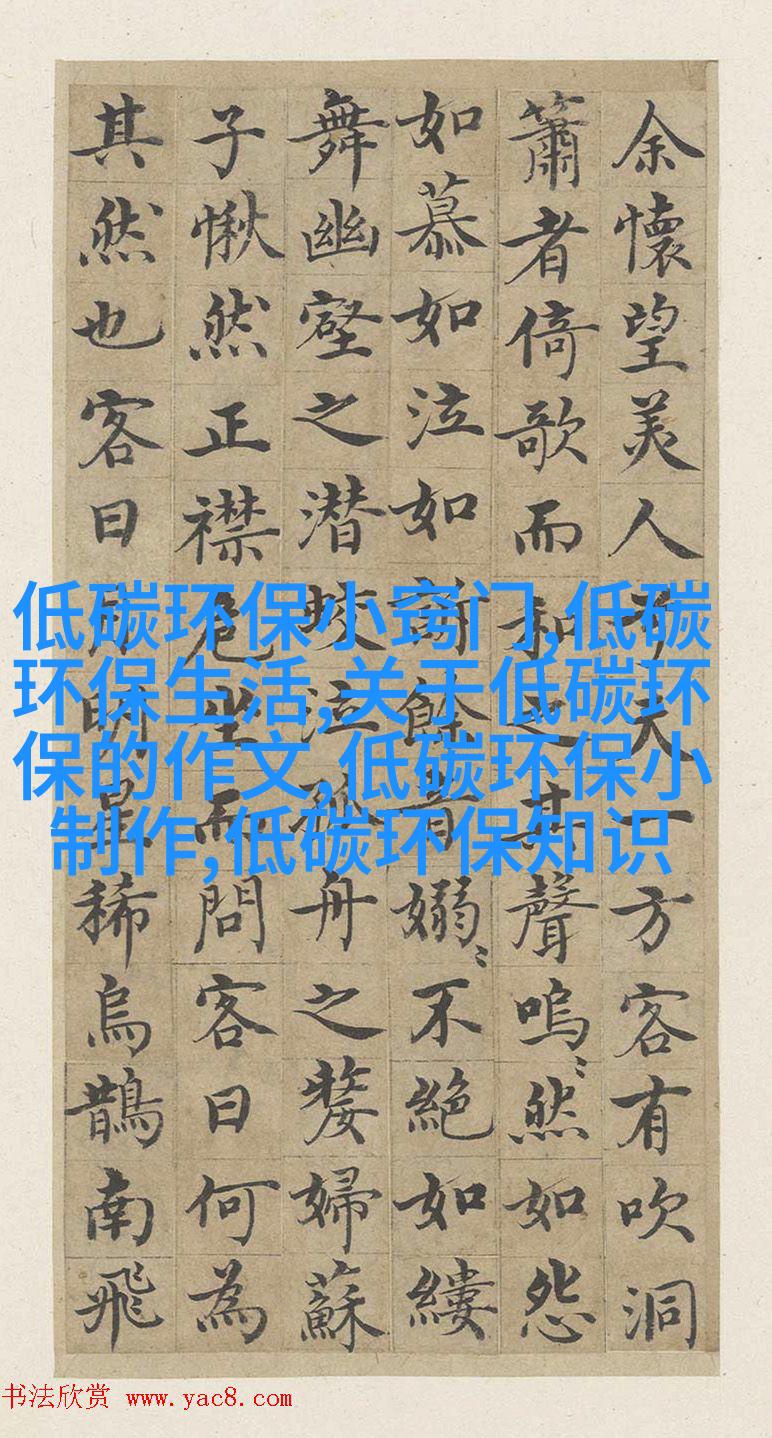 余懷望美人兮天一方客有吹洞
簫者倚歌而和之其聲嗚〻然如怨
如慕如泣如訴餘音嫋〻不絕如縷
舞幽壑之潜蛟泣孤舟之嫠婦蘇
子愀然正襟危坐而問客曰何為
其然也客曰月明星稀烏鵲南飛
低碳环保小窍门,低碳
环保生活,关于低碳环
保的作文,低碳环保小
制作,低碳环保知识
书法欣赏 www.yac8.com